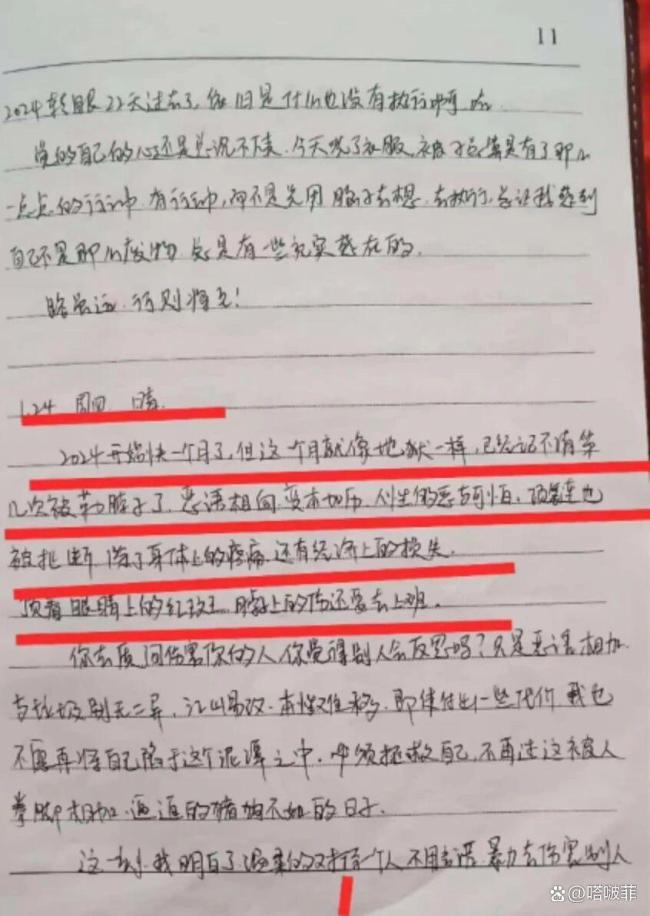 11
2024转眼22天过去了,依旧是什么也没有执行啊
自己的心还是总沉不住,今天洗了衣服、被子总算是有了那么
一点点的行动中,有行动,而不是先用脑子去想,去执行,总让我感到
自己不是那么废物,总是有一些充实感在的。
路虽远,行则将至!
1.24 周四 晴
2024开始快一个月了,但这一个月就像地狱一样,已经记不清第
几次被勒脖子了,恶语相向,变本加厉,人性的恶与可怕,项链也
被扯断,除了身体上的疼痛,还有经济上的损失。
顶着眼睛上的红,脖上的伤还要去上班。
你去质问伤害你的人,你觉得别人会反思吗?只是恶语相加
与垃圾别无二异,江山易改,本性难移,即使付出一些代价,我也
不愿再将自己陷于这个泥潭之中,必须拯救自己,不再过这被人
拳脚相加,逼迫的猪狗不如的日子。
这一刻,我明白了温柔的对待一个人,不用言语、暴力去伤害别人
@嗒啵菲